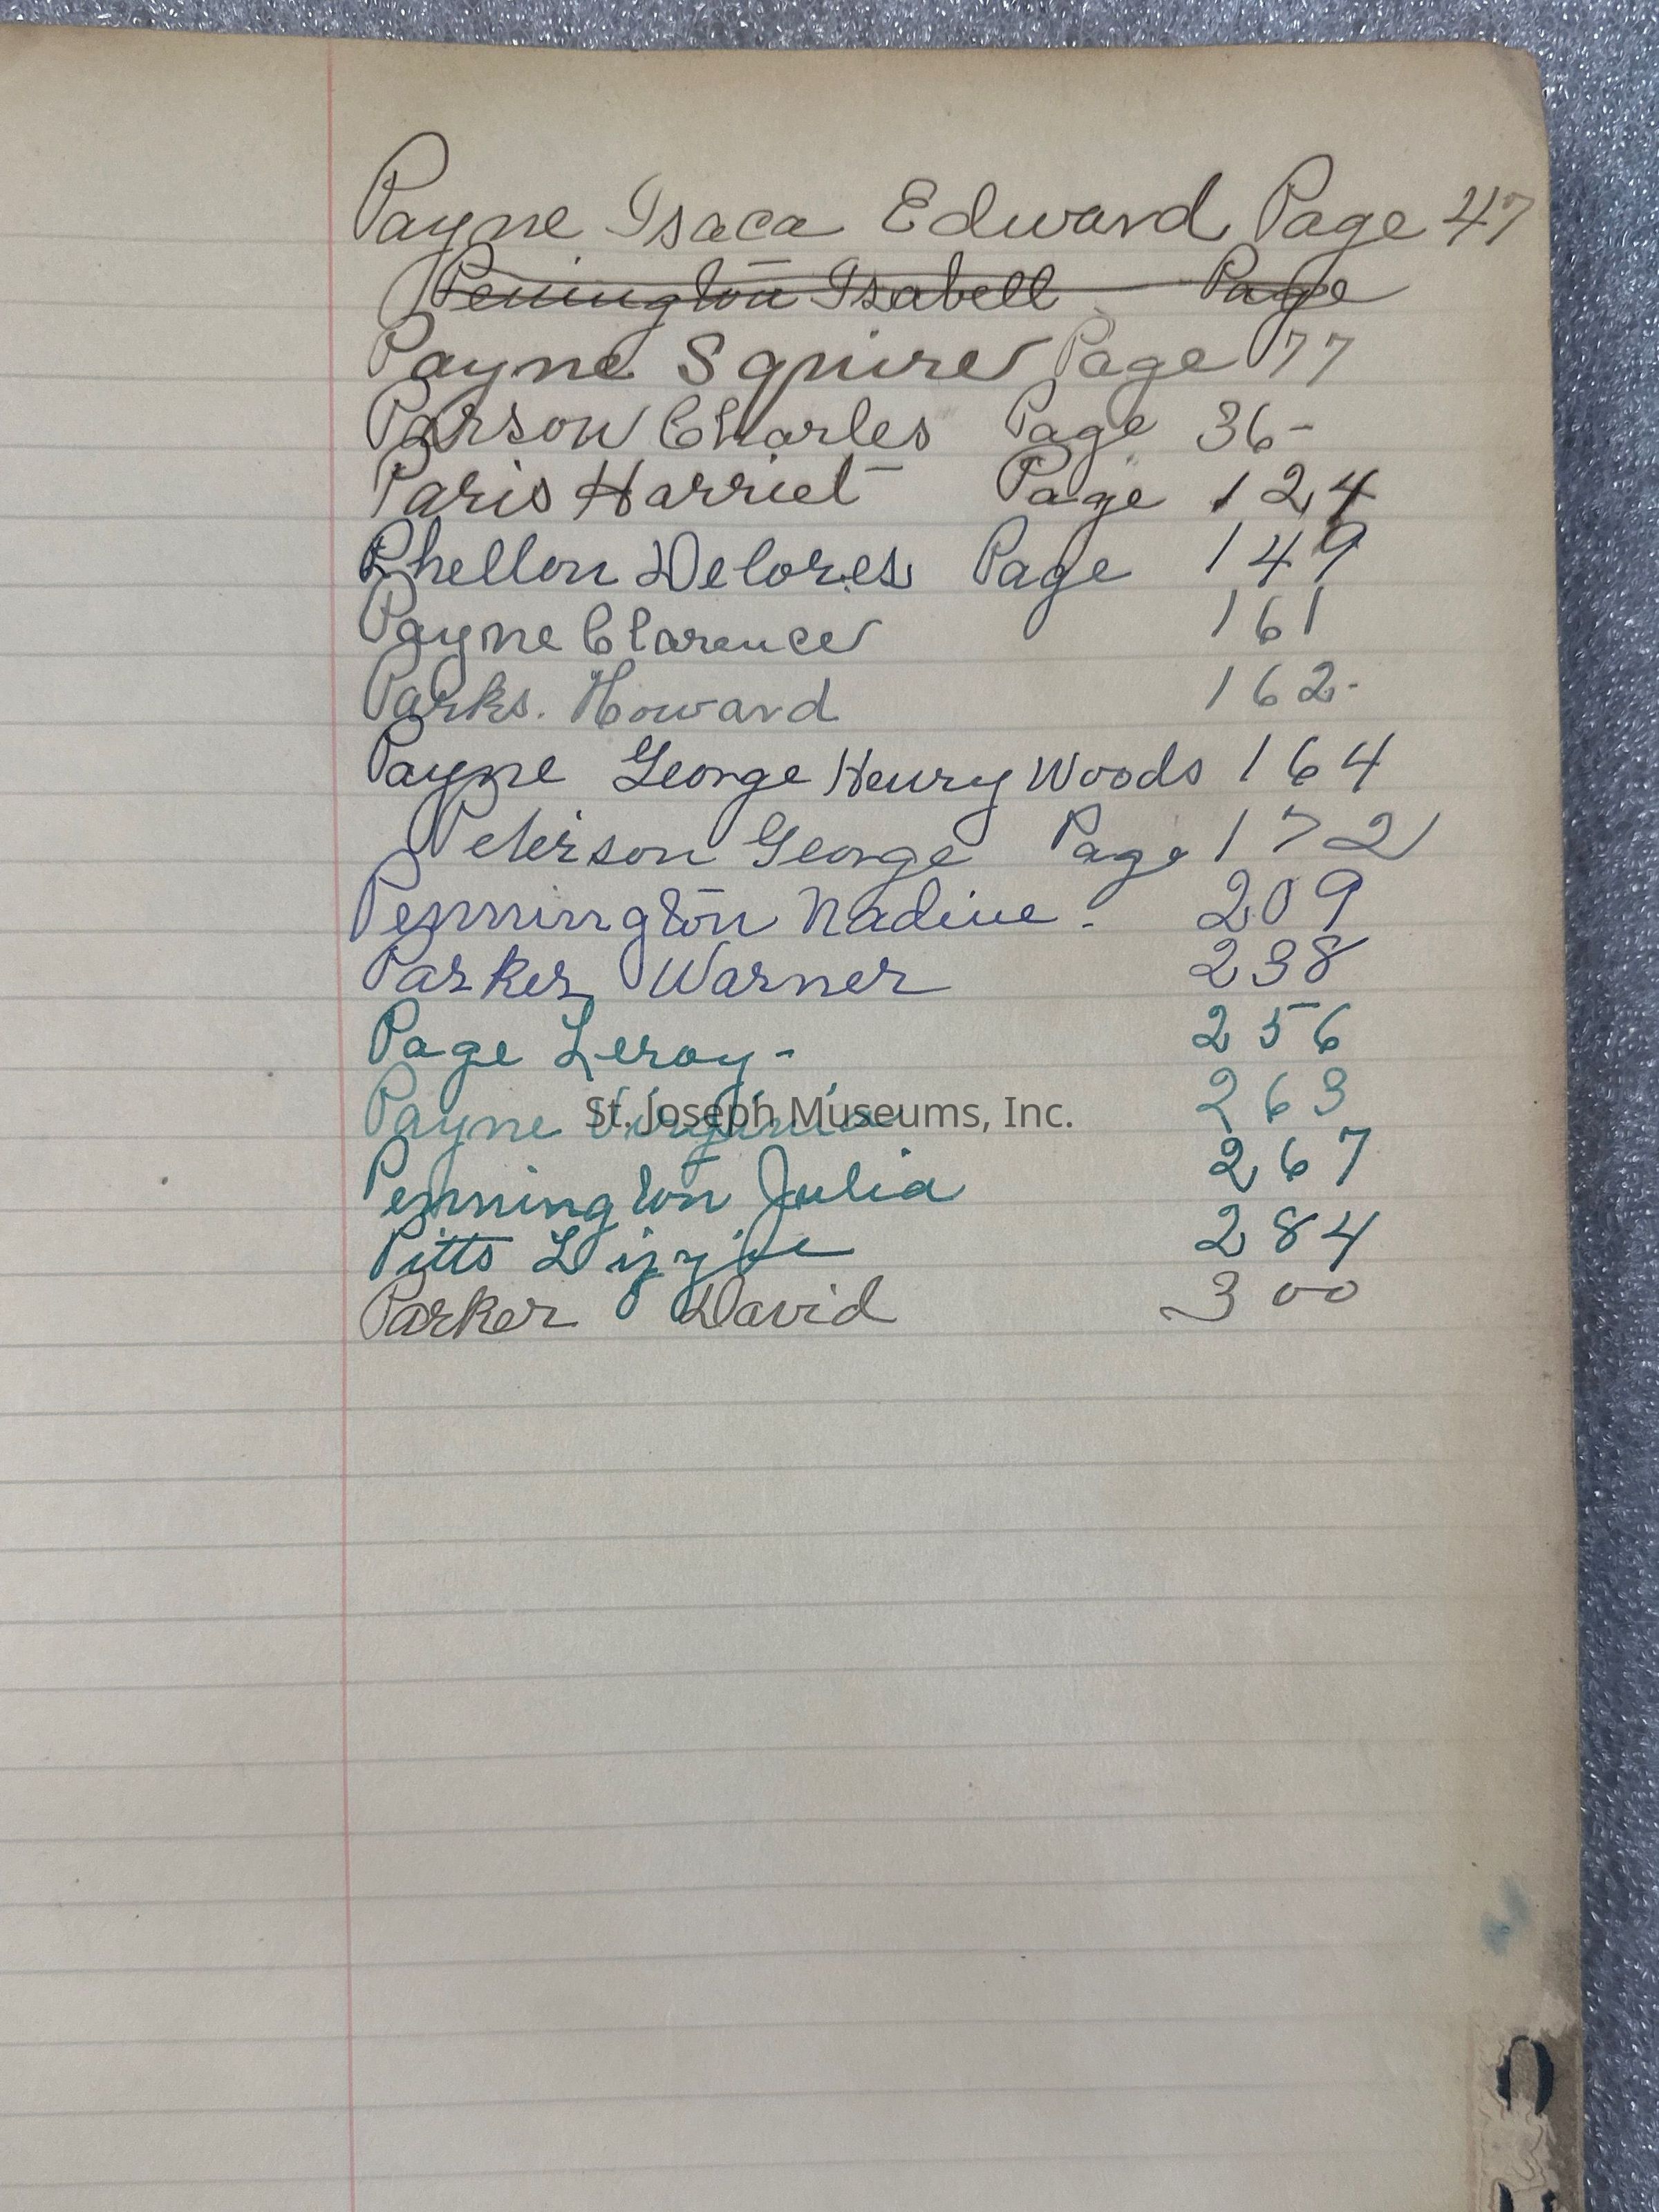 Payne Isaca Edward Page 47
Pennington Isabell Page
Payne Squire Page 77
Parson Charles Page 36-
Paris Harriet Page 124
Phellon Delores Page 149
Payne Clarence 161
Parks. Howard 162-
Payne George Henry Woods 164
Peterson George Page 172
Pennington Nadine - 209
Parker Warner 238
Page Leroy - 256
Payne Virginia 263
St. Joseph Museums, Inc.
Pennington Julia 267
Pitts Lizzie 284
Parker David 300